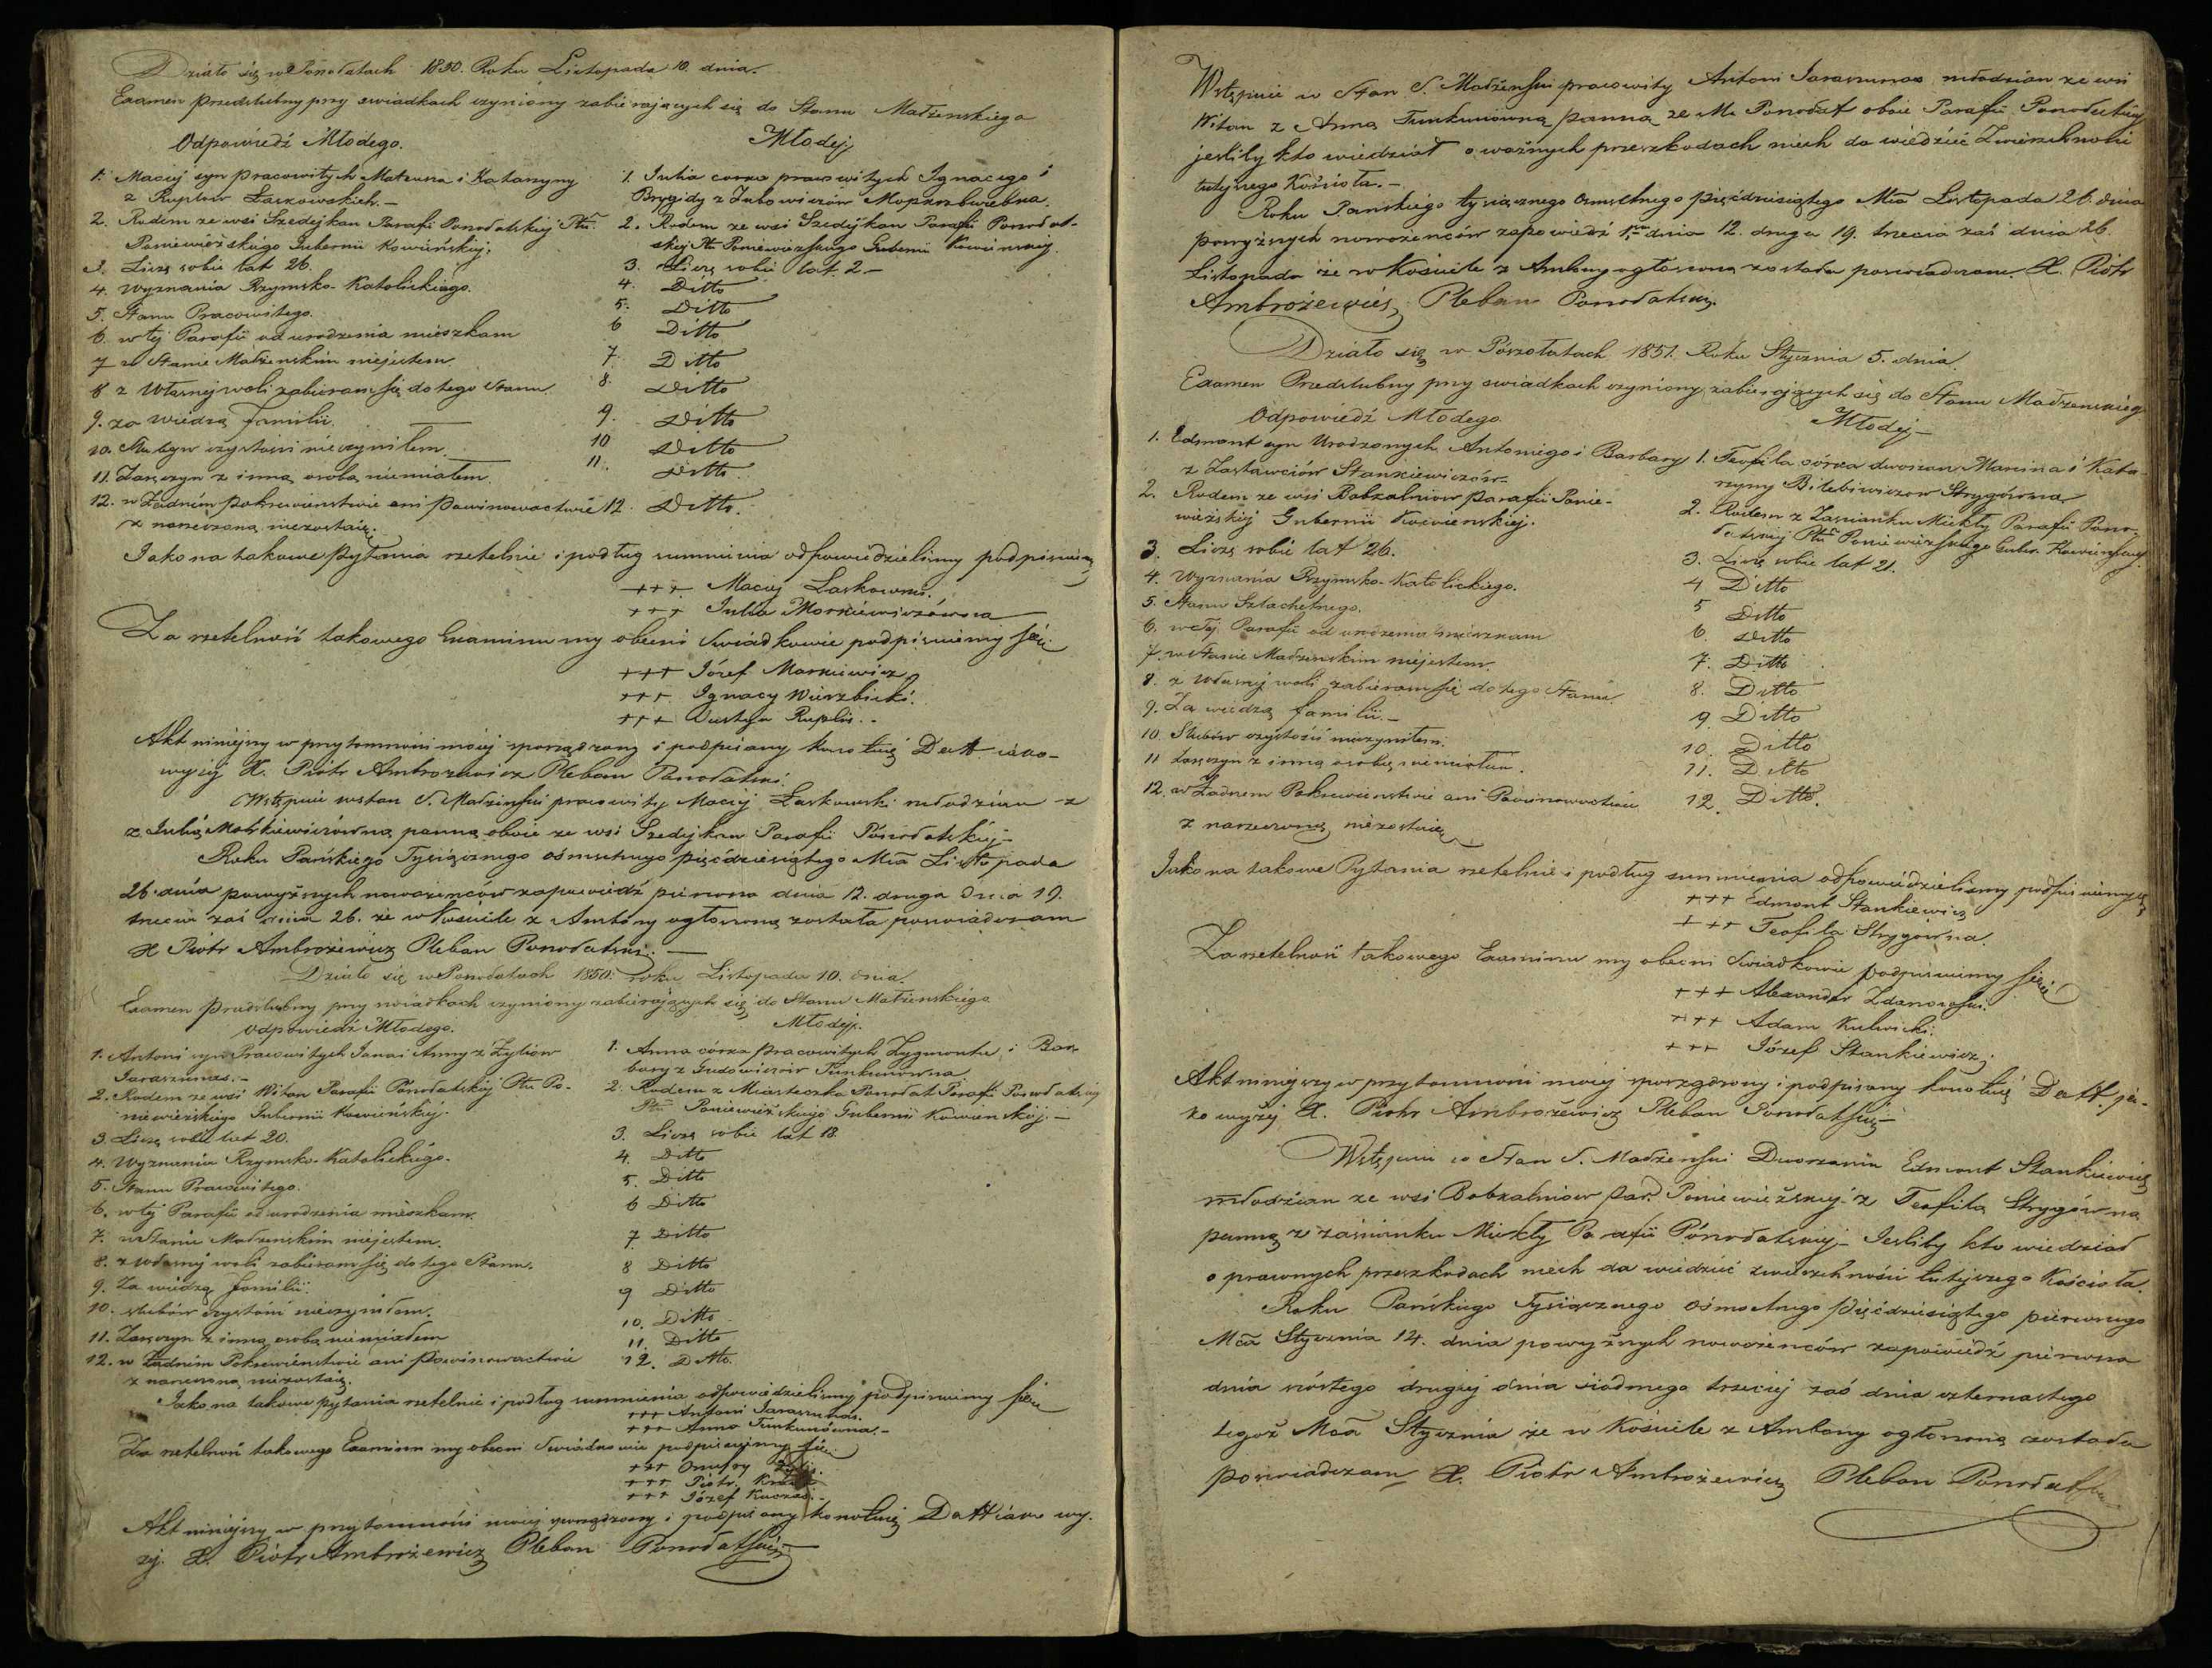 Działo się w Ponodatach 1850. Roku Listopada 10. dnia.
Examen przedślubny przy swiadkach czyniony zabierających się do Stanu Małżenskiego
Odpowiedź Młodego.
1. Maciej syn pracowitych Mateusza i Katarzyny
z Ruplow Laskowskich. —
2. Rodem ze wsi Szedejkan Parafii Ponodatskiej Ptu
Poniewieżskiego Gubernii Kowieńskiej.
3. Liczę sobie lat 26.
4. Wyznania Rzymsko-Katolickiego.
5. Stanu Pracowitego.
6. w tej Parafii od urodzenia mieszkam
7 w Stanie Małżenskim niejestem
8 z Własnej woli zabieram się do tego Stanu.
9. za wiedzą familii.
10. Slubow czystosci nieczyniłem.
11. Zaręczyn z inną osobą niemiałem.
12. w Żadnem pokrewienstwie ani powinowactwie
z narzeczoną niezostaię.
Młodej
1. Julia corka pracowitych Ignacego i
Brygidy z Jutowiczów
2. Rodem ze wsi Szedejkan Parafii Ponodat-
skiej Ptu Poniewieżskiego Gubernii Kowienskiej.
3. Liczę sobie lat 2 —
4. Ditto
5. Ditto
6 Ditto
7. Ditto
8. Ditto
9. Ditto
10 Ditto
11. Ditto.
12. Ditto.
Jako na takowe pytania rzetelnie i podług sumnienia odpowiedzielismy podpisuiemy
+++ Maciej Laskowski.
+++ Julia Morkiewiczówna
Za rzetelność takowego Examinu my obecni Swiadkowie podpisuiemy się.
+++ Józef Markiewicz
+++ Ignacy Wierzbicki.
+++ Justyn Ruplis. -
Akt niniejszy w przytomności mojej sporządzony i podpisany konotuię Datt iako-
wyżej X. Piotr Ambrożewicz Pleban Ponodatski
Wstępuie wstan S. Małżeński pracowity Maciej Łaskowski młodzian z
z Julią Morkiewiczówną panną oboie ze wsi Szedejkan Parafii Ponodatskiej -
Roku Pańskiego Tysiącznego ośmsetnego pięćdziesiątego Mca Listopada
26. dnia powyższych nowożenców zapowiedź pierwsza dnia 12. druga dnia 19.
trzecia zaś dnia 26. że w Kosciele z Ambony ogłoszoną została poswiadczam
X Piotr Ambrożewicz Pleban Ponodatski. —
Działo się w Ponodatach 1850. roku Listopada 10. dnia.
Examen przedślubny przy swiadkach czyniony zabierających się do Stanu Małżenskiego
Odpowiedź Młodego.
1. Antoni syn Pracowitych Jana i Anny z Żyliow
Jaraszunas. -
2. Rodem ze wsi Witan Parafii Ponodatskiej Ptu Po-
niewieżskiego Gubernii Kowienskiej.
3. Liczę sobie lat 20.
4. Wyznania Rzymsko-Katolickiego.
5. Stanu Pracowitego.
6. w tej Parafii od urodzenia mieszkam.
7. w Stanie Małżenskim niejestem.
8. z własnej woli zabieram się do tego Stanu.
9. Za wiedzą familii.
10. slubów czystości nieczyniłem.
11. Zaręczyn z inną osobą niemiałem
12. w Żadnem Pokrewienstwie ani powinowactwie
z narzeczoną niezostaię.
Młodej.
1. Anna córka pracowitych Zygmonta i Bar-
bary z Gudowiczów Tunkunówna
2. Rodem z Miasteczka Ponodat Parafii Ponodatskiej
Ptu Poniewieżskiego Gubernii Kowienskiej. —
3. Liczę sobie lat 18.
4. Ditto
5. Ditto
6 Ditto
7 Ditto
8 Ditto
9 Ditto
10. Ditto
11. Ditto
12. Ditto.
Jako na takowe pytania rzetelnie i podług sumnienia odpowiedzielismy podpisuiemy się
+++ Antoni Jaraszunas.
+++ Anna Tunkunówna. -
Za rzetelność takowego Examinu my obecni Swiadkowie podpisuiemy się.
+++ Onufry
+++ Piotr
+++ Józef
Akt niniejszy w przytomności mojej sporządzony i podpisany konotuię Datt iako wy-
żej. X. Piotr Ambrożewicz Pleban Ponodatski
Wstępuie w Stan S. Małżeński pracowity Antoni Jaraszunas młodzian ze wsi
Witan z Anną Tunkunówną panną ze M. Ponodat oboie Parafii Ponodatskiej
jesliby kto wiedział o ważnych przeszkodach niech da wiedzieć Zwierzchności
tutejszego Kościoła. —
Roku Panskiego tysiącznego osmsetnego pięćdziesiątego Mca Listopada 26. dnia
powyższych nowożenców zapowiedź 1sza dnia 12. druga 19. trzecia zaś dnia 26.
Listopada że w Kosciele z Ambony ogłoszoną została poswiadczam. X. Piotr
Ambrożewicz Pleban Ponodatski.
Działo się w Poszołatach 1851. Roku Stycznia 5. dnia.
Examen Przedslubny przy swiadkach czyniony zabierających się do Stanu Małżenskiego
Odpowiedź Młodego
1. Edmont syn Urodzonych Antoniego i Barbary
z Zastawciów Stankiewiczów
2. Rodem ze wsi Bobzalniow parafii Ponie-
wieżskiej Gubernii Kowienskiej.
3. Liczę sobie lat 26.
4. Wyznania Rzymsko-Katolickiego.
5. Stanu Szlachetnego.
6. w tej Parafii od urodzenia mieszkam
7. w Stanie Małżenskim niejestem.
8. z Własnej woli zabieram się do tego Stanu.
9. Za wiedzą familii. —
10. Slubów czystości nieczyniłem.
11 Zaręczyn z inną osobą niemiałem.
12. w Żadnem Pokrewienstwie ani Powinowactwie
z narzeczoną niezostaię
Młodej —
1. Teofila córka dworzan Marcina i Kata-
rzyny Bilebiwiczow Strygówna
2. Rodem z Zascianku Miekły Parafii Pono-
datskiej Ptu Poniewieżskiego Guber. Kowienskiej.
3. Liczę sobie lat 21.
4 Ditto
5 Ditto
6. Ditto
7. Ditto
8. Ditto
9 Ditto
10. Ditto
11. Ditto
12. Ditto.
Jako na takowe Pytania rzetelnie i podług sumnienia odpowiedzielismy podpisuiemy się
+++ Edmont Stankiewicz
+++ Teofila Strygówna.
Za rzetelność takowego Examinu my obecni Swiadkowie podpisuiemy się
+++ Alexander Zdanowski.
+++ Adam Kulwicki.
+++ Józef Stankiewicz.
Akt niniejszy w przytomności mojej sporządzony i podpisany konotuię Datt ja-
ko wyżej X. Piotr Ambrożewicz Pleban Ponodatski
Wstępuie w Stan S. Małżeński Dworzanin Edmont Stankiewicz
młodzian ze wsi Bobzalniow par. Poniewieżskiej z Teofilą Strygówną
panną z zascianku Miekły Parafii Ponodatskiej - Jesliby kto wiedział
o prawnych przeszkodach niech da wiedzieć zwierzchności tutejszego Kościoła.
Roku Pańskiego Tysiącznego ośmsetnego pięćdziesiątego pierwszego
Mca Stycznia 14. dnia powyższych nowożenców zapowiedź pierwsza
dnia szóstego drugiej dnia siodmego trzeciej zaś dnia czternastego
tegoż Mca Stycznia że w Kosciele z Ambony ogłoszoną została
poswiadczam X. Piotr Ambrożewicz Pleban Ponodatski